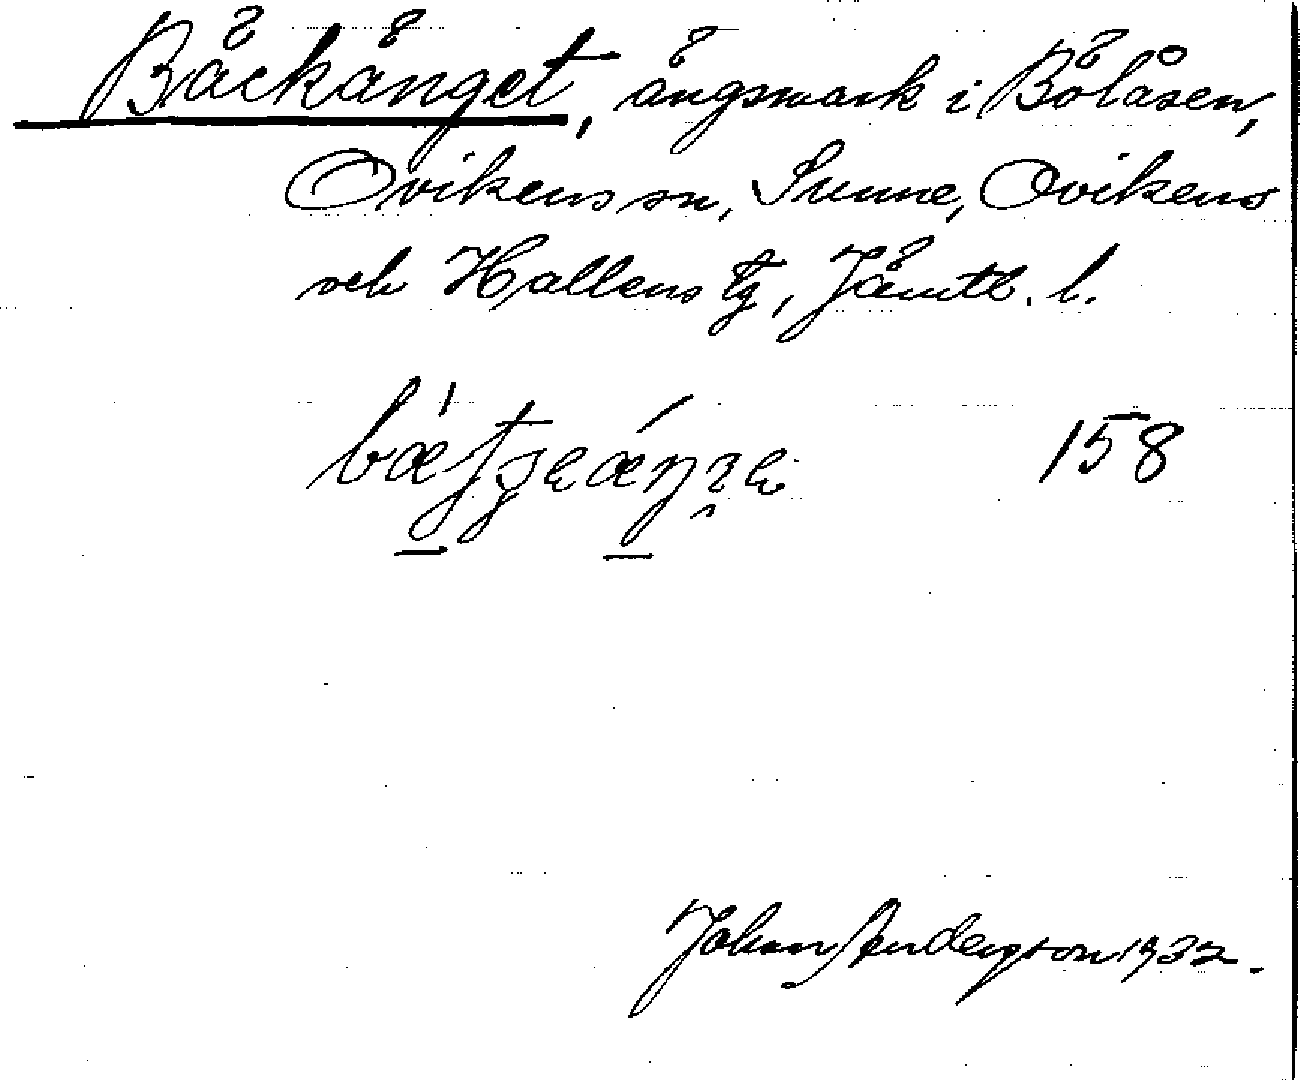 Bäckänget, ängsmark i Bölåsen,
Ovikens sn, Sunne, Ovikens
och Hallens tg, Jämtl. l.
158
Johan Anderson 1932.